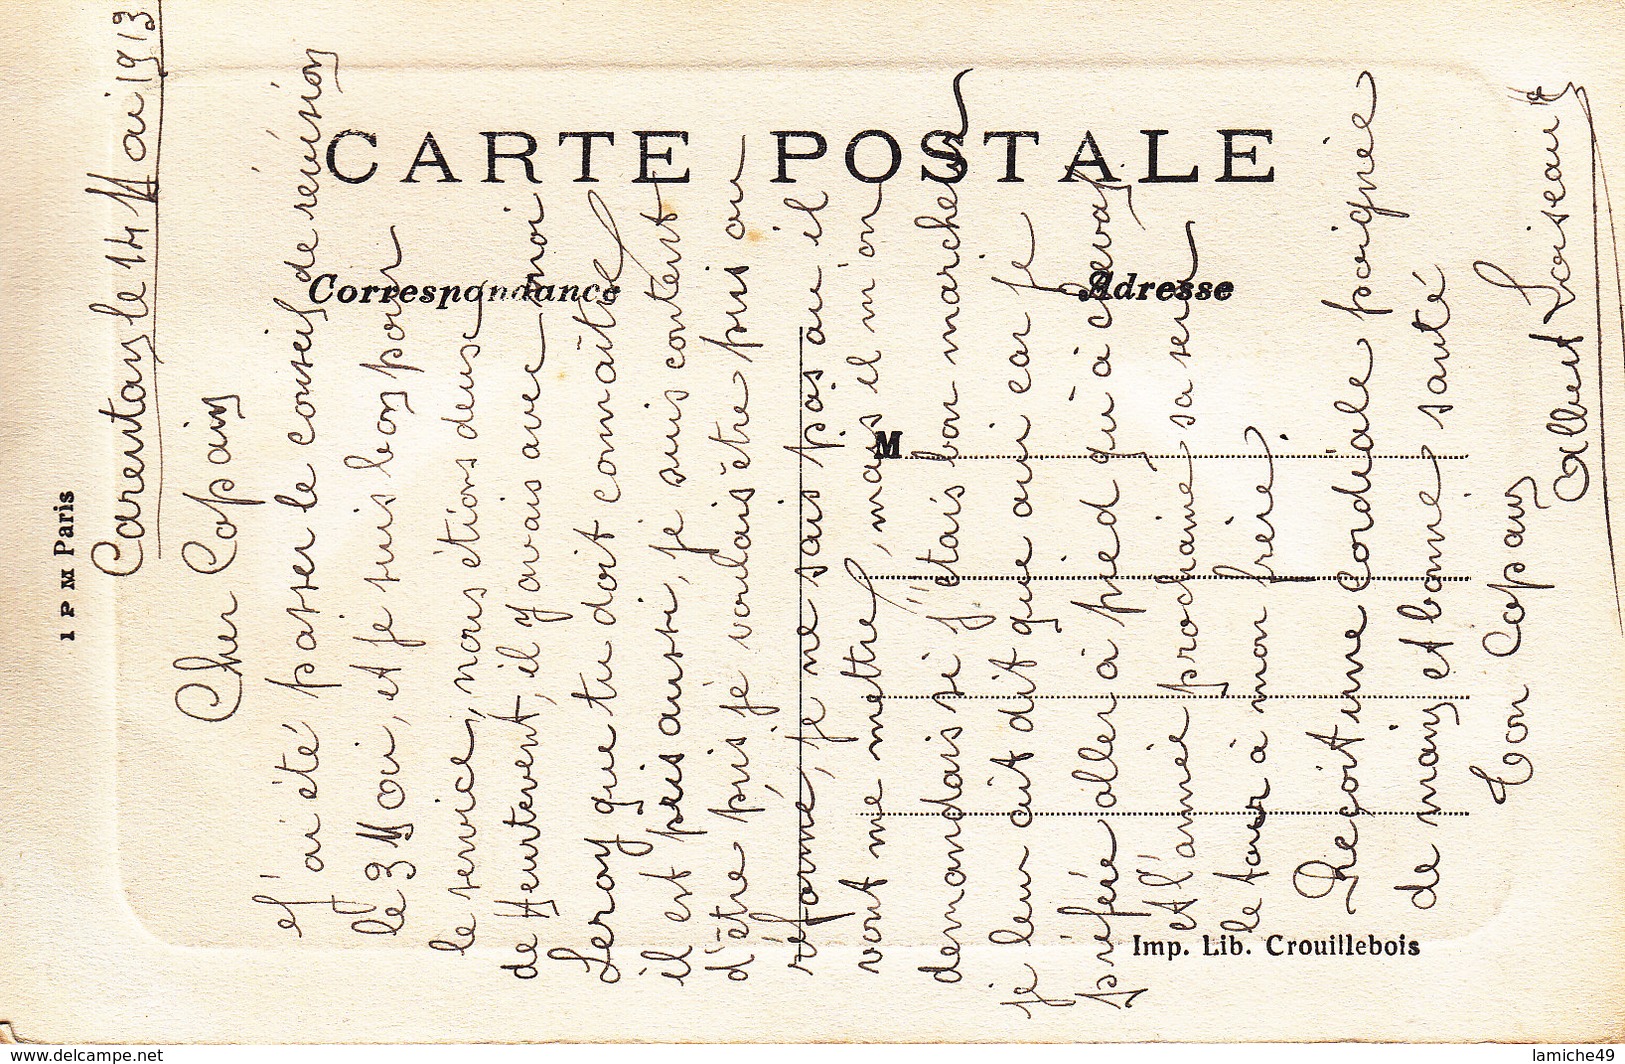 CARTE POSTALE
Correspondance
Adresse
M
1 P M Paris
Imp. Lib. Crouillebois
Carentan, le 14 Mai 1913
Cher Copain
J'ai été passer le conseil de revision
le 3 Mai, et je suis bon pour
le service, nous étions deux
de Heurtevent, il y avais avec moi
Leroy que tu doit connaître
il est pris aussi, je suis content
d'être pris je voulais être pris ou
réformé, je ne sais pas ou il
vont me mettre, mais il m'on
demandais si j'étais bon marcheur
je leur ait dit que oui car je
préfére aller à pied qu'à cheval
et l'année prochaine sa sera
le tour à mon frère.
Reçoit une cordiale poignée
de main et bonne santé
Ton Copain
Albert Loiseau
www.delcampe.net
lamiche49